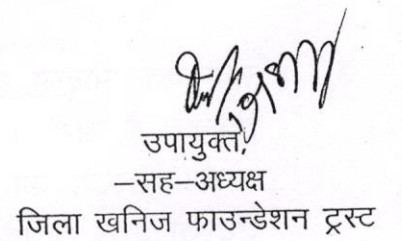 उपायुक्त,
–सह–अध्यक्ष
जिला खनिज फाउन्डेशन ट्रस्ट